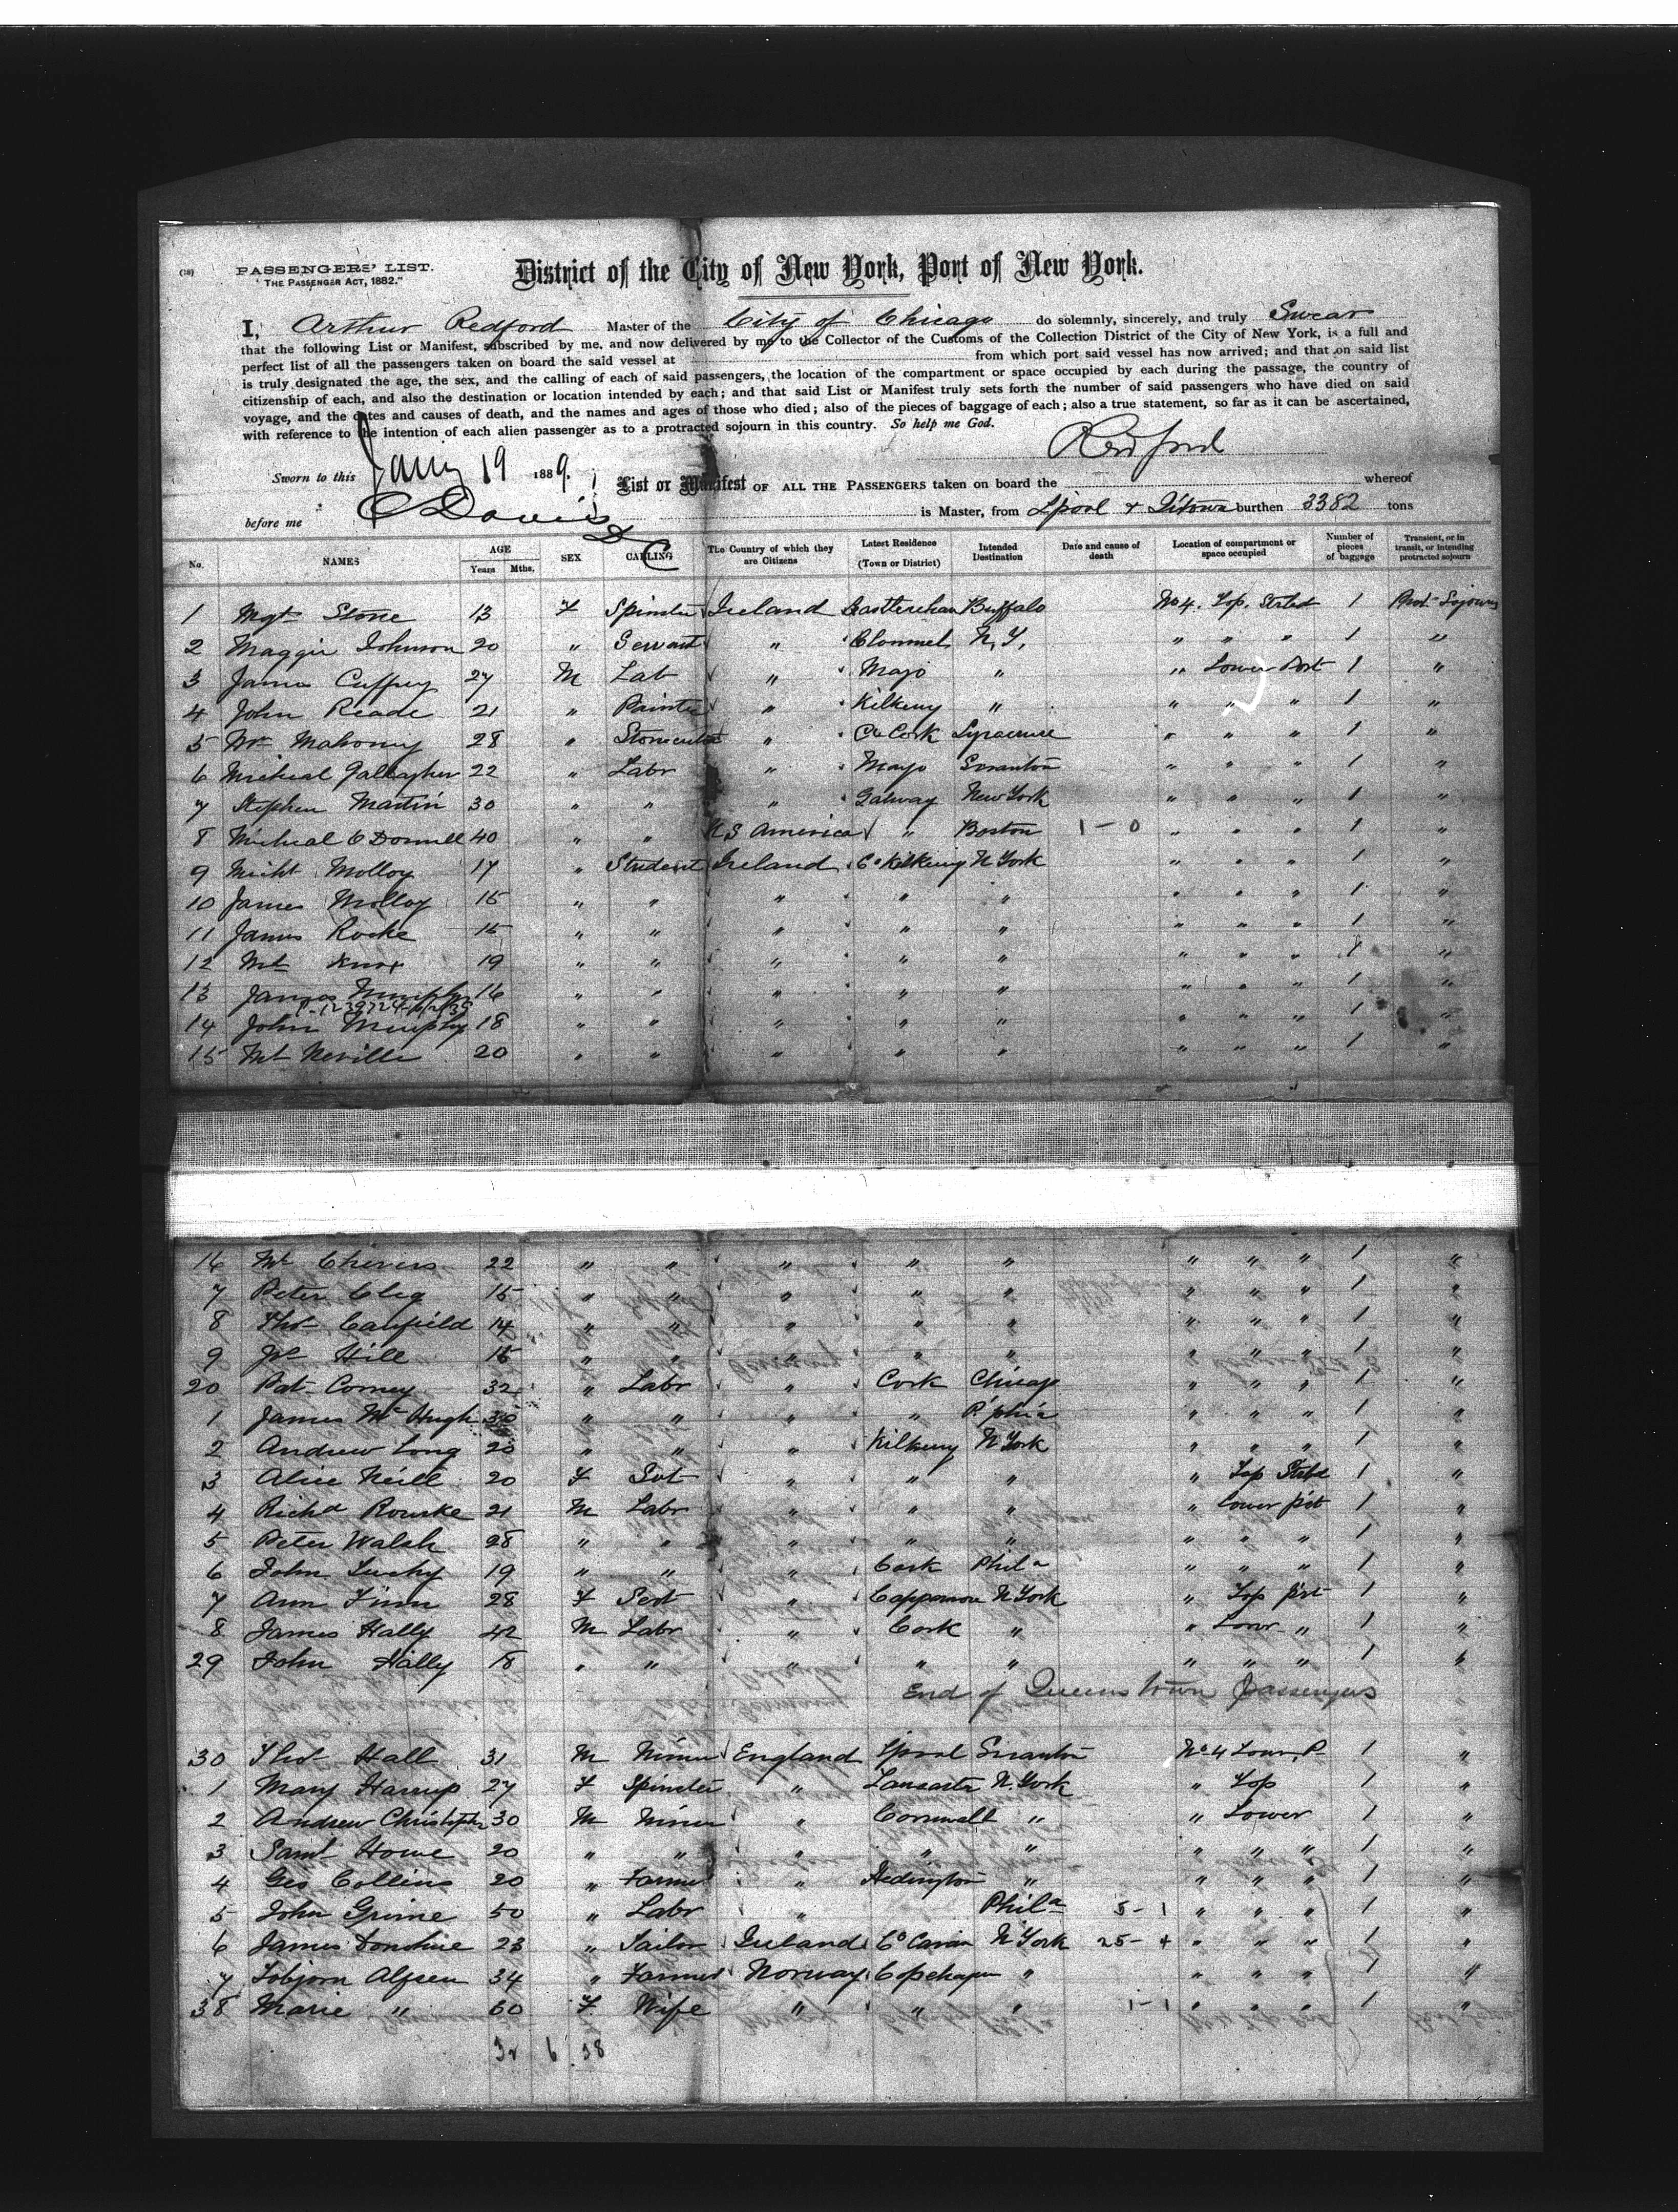 (18)
PASSENGERS' LIST.
"THE PASSENGER ACT, 1882."
District of the City of New York, Port of New York.
I, Arthur Redford Master of the City of Chicago do solemnly, sincerely, and truly Swear
that the following List or Manifest, subscribed by me, and now delivered by me to the Collector of the Customs of the Collection District of the City of New York, is a full and
perfect list of all the passengers taken on board the said vessel at from which port said vessel has now arrived; and that on said list
is truly designated the age, the sex, and the calling of each of said passengers, the location of the compartment or space occupied by each during the passage, the country of
citizenship of each, and also the destination or location intended by each; and that said List or Manifest truly sets forth the number of said passengers who have died on said
voyage, and the dates and causes of death, and the names and ages of those who died; also of the pieces of baggage of each; also a true statement, so far as it can be ascertained,
with reference to the intention of each alien passenger as to a protracted sojourn in this country. So help me God.
Redford
Sworn to this Jany 19 1889.
List or Manifest OF ALL THE PASSENGERS taken on board the whereof
before me Davis
is Master, from Lpool & Qtown burthen 3382 tons
No. NAMES AGE Years Mths. SEX CALLING The Country of which they are Citizens Latest Residence (Town or District) Intended Destination Date and cause of death Location of compartment or space occupied Number of pieces of baggage Transient, or in transit, or intending protracted sojourn
1 Mgt Stone 13 F Spinster Ireland Buffalo No 4. Top. Strbd 1 Prot- Sojourn
2 Maggie Johnson 20 " Servant " Clonmel N.Y. " " " 1 "
3 James Cuffey 27 M Lab " Mayo " " Lower Port 1 "
4 John Reade 21 " Painter " Kilkeny " " " " 1 "
5 Wm Mahony 28 " Stonecutter " Co Cork Syracuse " " " 1 "
6 Micheal Gallagher 22 " Labr " Mayo Scranton " " " 1 "
7 Stephen Martin 30 " " " Galway New York " " " 1 "
8 Micheal O Donnell 40 " " U S America " Boston 1-0 " " " 1 "
9 Micht Molloy 17 " Student Ireland Co Kilkeny N York " " " 1 "
10 James Molloy 15 " " " " " " " " 1 "
11 James Roche 15 " " " " " " " " 1 "
12 Mt Knox 19 " " " " " " " " 1 "
13 James Murphy 16 " " " " " " " " 1 "
14 John Murphy 18 " " " " " " " " 1 "
15 Mt Neville 20 " " " " " " " " 1 "
16 Mt Chivers 22 " " " " " " " " 1 "
7 Peter Cleg 15 " " " " " " " " 1 "
8 Thos Canfield 14 " " " " " " " " 1 "
9 Jno Hill 15 " " " " " " " " 1 "
20 Pat Corney 32 " Labr " Cork Chicago " " " 1 "
1 James McHugh 30 " " " " P'phia " " " 1 "
2 Andrew Long 20 " " " Kilkeny N York " " " 1 "
3 Alice Neill 20 F Svt " " " " Top Strbd 1 "
4 Richd Rourke 21 M Labr " " " " Lower prt 1 "
5 Peter Walsh 28 " " " " " " " " 1 "
6 John Luchy 19 " " " Cork Phila " " " 1 "
7 Ann Finn 28 F Sevt " N York " Top prt 1 "
8 James Hally 42 M Labr " Cork " " Lowr " 1 "
29 John Hally 18 " " " " " " " " 1 "
End of Queenstown passengers
30 Thos Hall 31 M Miner England Lpool Scranton No 4 Lowr. P 1 "
1 Mary Harrup 27 F Spinster " Lancaster N. York " Top 1 "
2 Andrew Christopher 30 M Miner " Cornwall " " Lower 1 "
3 Saml Howe 20 " " " " " " " " 1 "
4 Geo Collins 20 " Farmer " Hedington " " " " 1 "
5 John Grime 50 " Labr " Phila 5-1 " " " 1 "
6 James Donohue 23 " Sailor Ireland Co Cavan N York 25- + " " " 1 "
7 Tobjorn Alfsen 34 " Farmer Norway Copehagen " " " " 1 "
38 Marie " 60 F Wife " " " 1-1 " " " 1 "
32 6 38